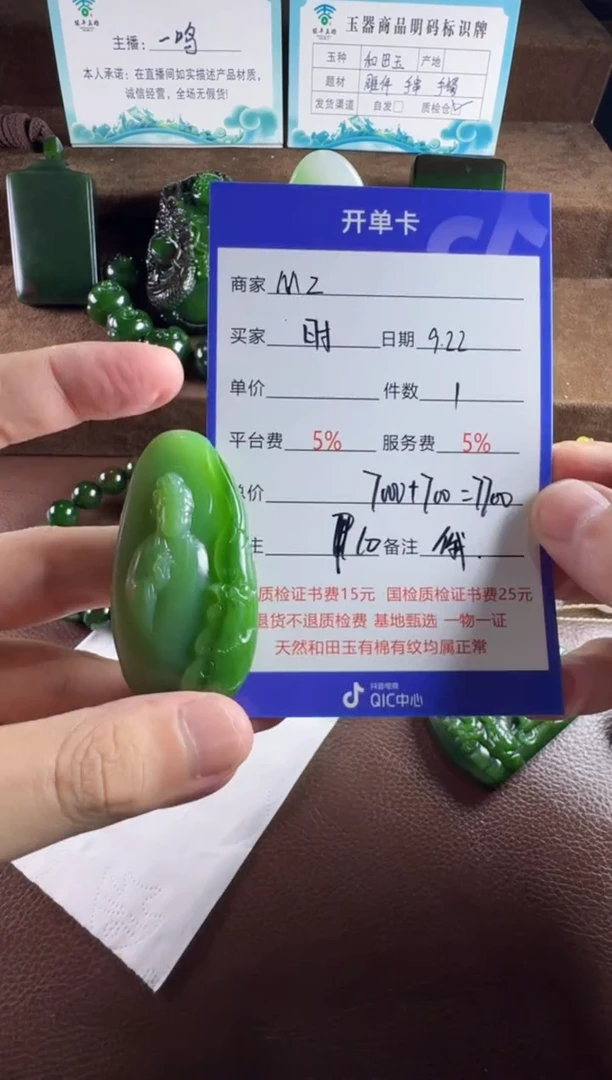 主播：一鸣
本人承诺：在直播间如实描述产品材质，
诚信经营，全场无假货！
玉器商品明码标识牌
玉种 和田玉 产地
题材 雕件 手串 手镯
发货渠道 自发□ 质检仓☑
开单卡
商家 MZ
买家 日时 日期 9.22
单价 件数 1
平台费 5% 服务费 5%
价 7000+700=7700
主 10 备注
质检证书费15元 国检质检证书费25元
退货不退质检费 基地甄选 一物一证
天然和田玉有棉有纹均属正常
抖音电商
QIC中心